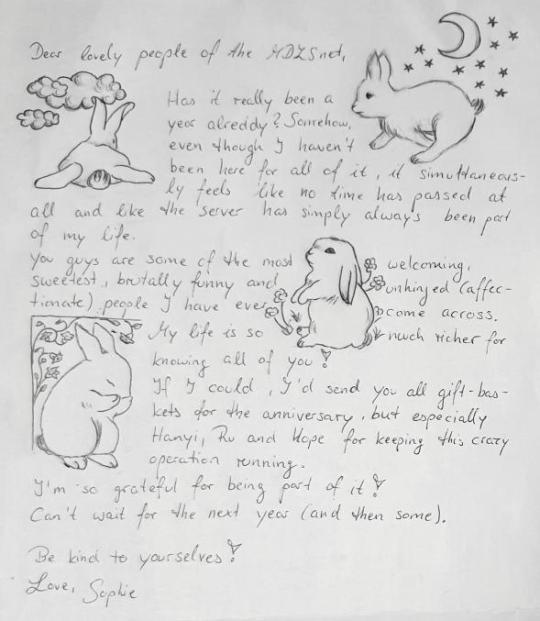 Dear lovely people of the MDZSnet,
Has it really been a
year alreddy? Somehow,
even though I haven't
been here for all of it, it simultaneous-
ly feels like no time has passed at
all and like the server has simply always been part
of my life.
You guys are some of the most welcoming,
sweetest, brutally funny and unhinged (affec-
tionate) people I have ever come across.
My life is so much richer for
knowing all of you!
If I could, I'd send you all gift-bas-
kets for the anniversary, but especially
Hanyi, Ru and Hope for keeping this crazy
operation running.
I'm so grateful for being part of it!
Can't wait for the next year (and then some).
Be kind to yourselves!
Love, Sophie